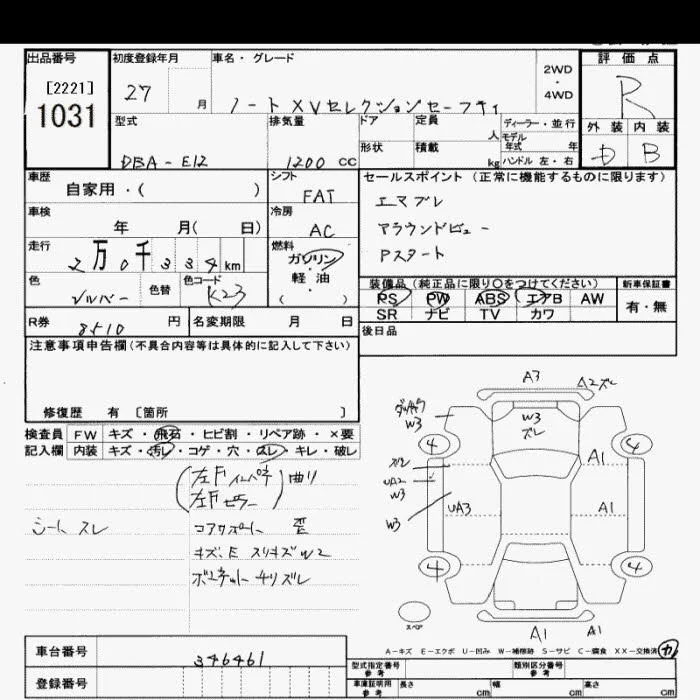 出品番号
[2221]
1031
初度登録年月
27 月
車名・グレード
ノート XVセレクションセーフティ
2WD
・
4WD
評価点
R
外装 内装
D B
型式
DBA-E12
排気量
1200 cc
ドア
定員
人
形状
積載
kg
ディーラー・並行
モデル年式 年
ハンドル 左・右
車歴
自家用・( )
シフト
FAT
セールスポイント (正常に機能するものに限ります)
エマブレ
アラウンドビュー
Pスタート
車検
年 月( 日)
冷房
AC
走行
2万0千334km
燃料
ガソリン
・
軽油
( )
色
シルバー
色替
色コード
K23
装備品 (純正品に限り〇をつけてください)
PS PW ABS エアB AW
SR ナビ TV カワ
新車保証書
有・無
R券
8510 円
名変期限 月 日
後日品
注意事項申告欄 (不具合内容等は具体的に記入して下さい)
修復歴 有 [箇所 ]
検査員
記入欄
FW キズ・飛石・ヒビ割・リペア跡・×要
内装 キズ・汚レ・コゲ・穴・スレ・キレ・破レ
左Fインパネ
左Fピラー
曲り
シート スレ
コアサポート 歪
キズ、E スリキズ W2
ボンネット チリズレ
A3
A2ズレ
W3
W3
ズレ
4
4
A1
ズレ
UA2
W3
W3
UA3
A1
4
4
スペア
A1
A1
A-キズ E-エクボ U-凹み W-補修跡 S-サビ C-腐食 XX-交換済
車台番号
346461
登録番号
型式指定番号
参考
類別区分番号
参考
車庫証明用
参考
長さ cm
幅 cm
高さ cm